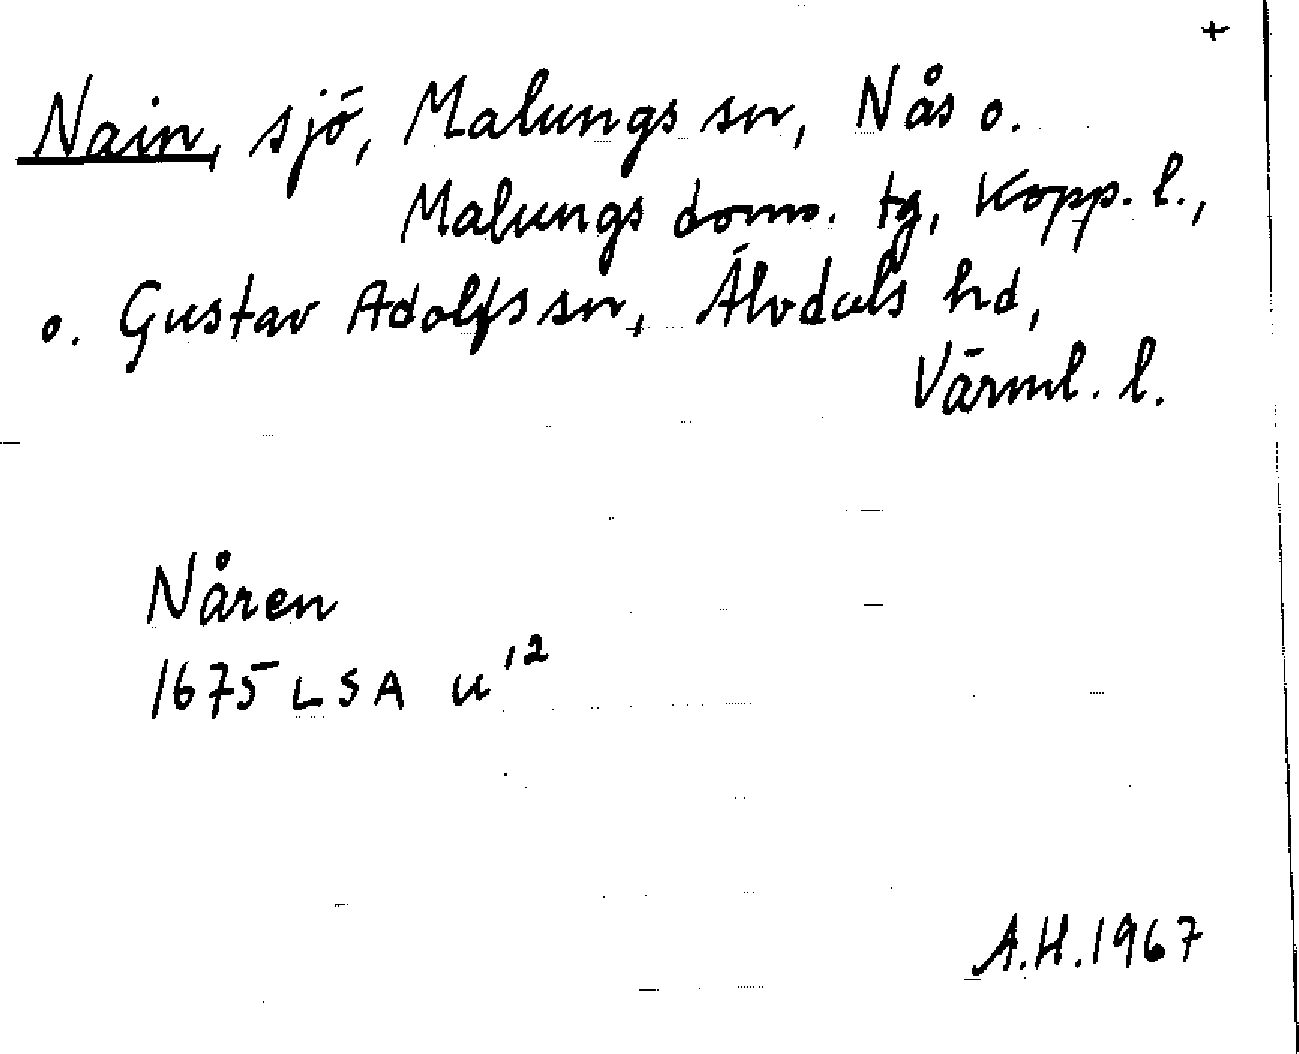 +
Nain, sjö, Malungs sn, Nås o.
Malungs doms. tg, Kopp. l.,
o. Gustav Adolfs sn, Älvdals hd,
Värml. l.
Nåren
1675 LSA u'2
A.H. 1967